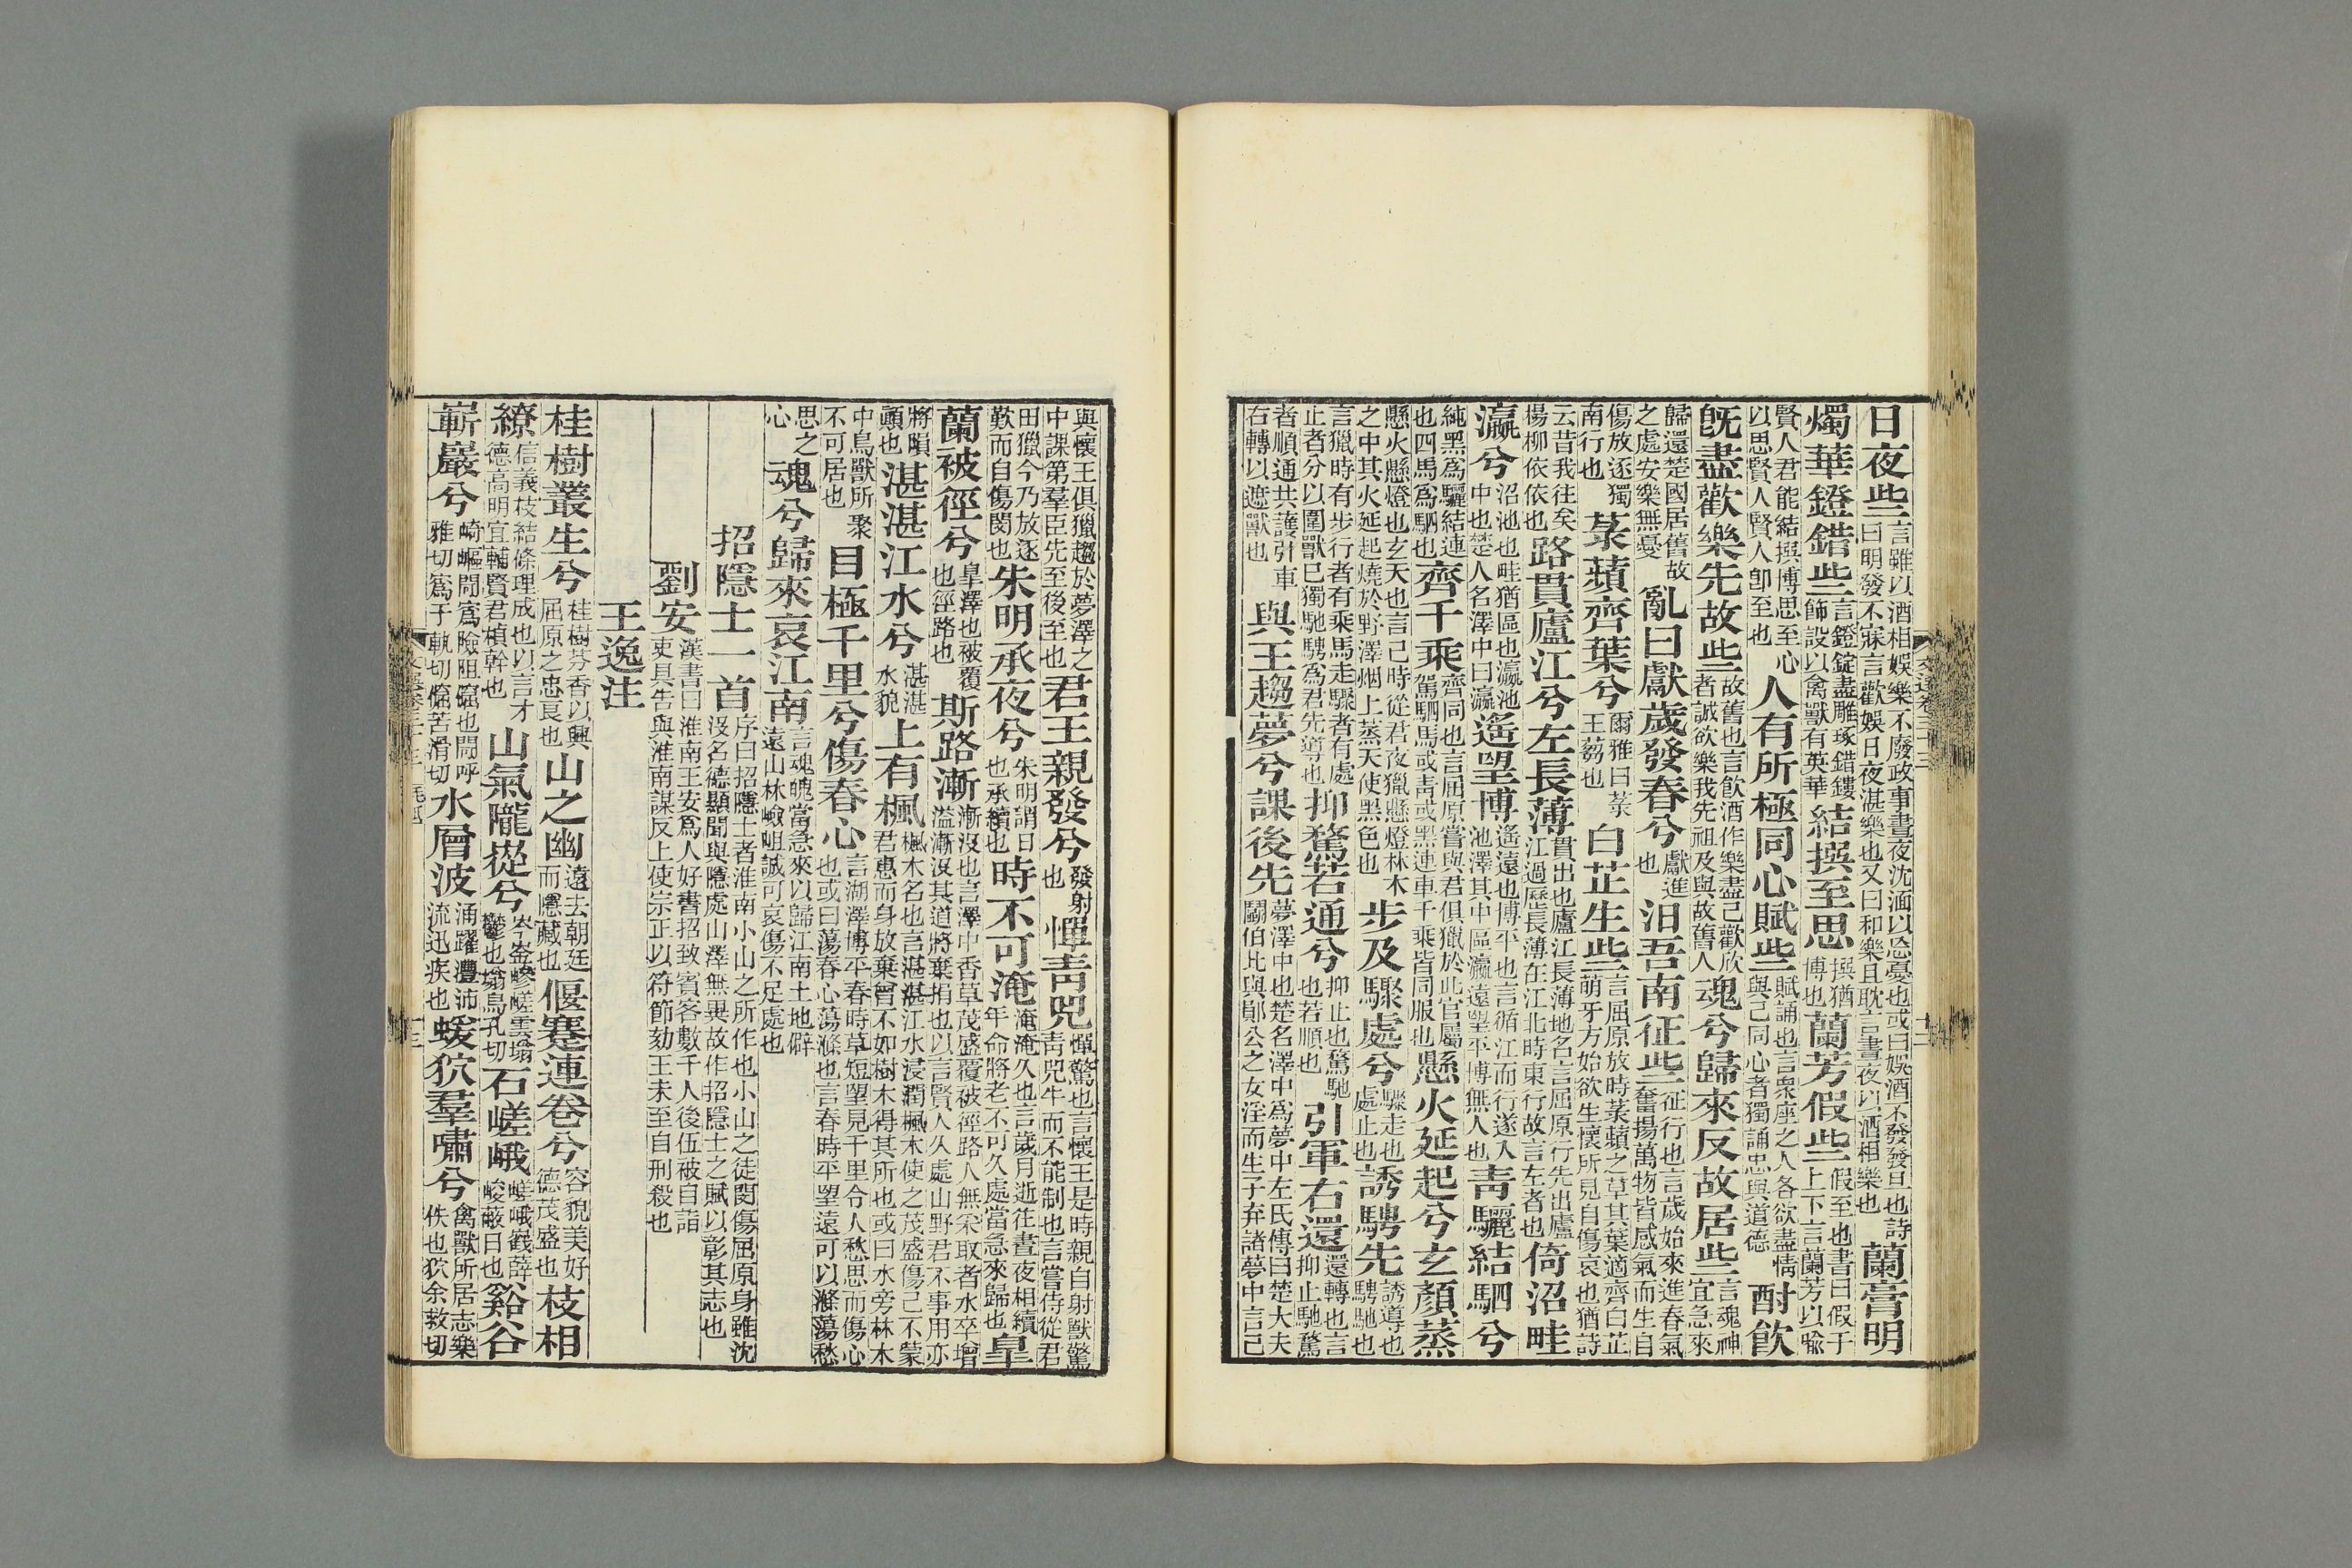 日夜些言雖以酒相娛樂不廢政事晝夜沈湎以忘憂也或曰娛酒不發發旦也詩曰明發不寐言歡娛日夜湛樂也又曰和樂且耽言晝夜以酒相樂也蘭膏明
燭華鐙錯些言鐙錠盡雕琢錯鏤飾設以禽獸有英華結撰至思撰猶博也蘭芳假些假至也書曰假于上下言蘭芳以喻
賢人君能結撰博思至心以思賢人賢人卽至也人有所極同心賦些賦誦也言衆座之人各欲盡情與己同心者獨誦忠與道德酎飮
旣盡歡樂先故些故舊也言飮酒作樂盡己歡欣者誠欲樂我先祖及與故舊人魂兮歸來反故居些言魂神宜急來
歸還楚國居舊故之處安樂無憂亂曰獻歲發春兮獻進也汨吾南征些征行也言歲始來進春氣奮揚萬物皆感氣而生自
傷放逐獨南行也菉蘋齊葉兮爾雅曰菉王蒭也白芷生些言屈原放時菉蘋之草其葉適齊白芷萌牙方始欲生懷所見自傷哀也猶詩
云昔我往矣楊柳依依也路貫廬江兮左長薄貫出也廬江長薄地名言屈原行先出廬江過歷長薄在江北時東行故言左者也倚沼畦
瀛兮沼池也畦猶區也瀛池中也楚人名澤中曰瀛遙望博遙遠也博平也言循江而行遂入池澤其中區瀛遠望平博無人也靑驪結駟兮
純黑爲驪結連也四馬爲駟也齊千乘齊同也言屈原嘗與君俱獵於此官屬駕駟馬或靑或黑連車千乘皆同服也懸火延起兮玄顏蒸
懸火懸燈也玄天也言己時從君夜獵懸燈林木之中其火延起燒於野澤烟上蒸天使黑色也步及驟處兮驟走也處止也誘騁先誘導也騁馳也
言獵時有步行者有乘馬走驟者有處止者分以圍獸已獨馳騁爲君先導也抑騖若通兮抑止也騖馳也若順也引軍右還還轉也言抑止馳騖
者順通共護引車右轉以遮獸也與王趨夢兮課後先夢澤中也楚名澤中爲夢中左氏傳曰楚大夫鬭伯比與䢵公之女淫而生子弃諸夢中言己
與懷王俱獵趨於夢澤之中課第羣臣先至後至也君王親發兮發射也憚靑兕憚驚也言懷王是時親自射獸驚靑兕牛而不能制也言嘗侍從君
田獵今乃放逐歎而自傷閔也朱明承夜兮朱明謂日也承續也時不可淹淹久也言歲月逝往晝夜相續年命將老不可久處當急來歸也臯
蘭被徑兮臯澤也被覆也徑路也斯路漸漸沒也言澤中香草茂盛覆被徑路人無采取者水卒增溢漸沒其道將棄捐也以言賢人久處山野君不事用亦
將隕顚也湛湛江水兮湛湛水貌上有楓楓木名也言湛湛江水浸潤楓木使之茂盛傷己不蒙君惠而身放棄曾不如樹木得其所也或曰水旁林木
中鳥獸所聚不可居也目極千里兮傷春心言湖澤博平春時草短望見千里令人愁思而傷心也或曰蕩春心蕩滌也言春時平望遠可以滌蕩愁
思之心魂兮歸來哀江南言魂魄當急來以歸江南土地僻遠山林嶮岨誠可哀傷不足處也
招隱士一首序曰招隱士者淮南小山之所作也小山之徒閔傷屈原身雖沈沒名德顯聞與隱處山澤無異故作招隱士之賦以彰其志也
劉安漢書曰淮南王安爲人好書招致賓客數千人後伍被自詣吏具吿與淮南謀反上使宗正以符節劾王未至自刑殺也
王逸注
桂樹叢生兮桂樹芬香以興屈原之忠良也山之幽遠去朝廷而隱藏也偃蹇連卷兮容貌美好德茂盛也枝相
繚信義枝結條理成也以言才德高明宜輔賢君楨幹也山氣巃嵸兮岑崟嵾嵯雲滃鬱也滃烏孔切石嵯峨嵯峨巀嶭峻蔽日也谿谷
嶄巖兮崎嶇閜寪險阻䆷也閜呼雅切寪于軌切䆷苦滑切水層波涌躍灃沛流迅疾也蝯狖羣嘯兮禽獸所居志樂佚也狖余救切